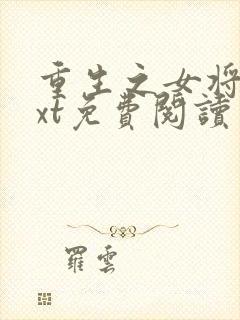 重生之女将
xt免費閱讀
羅雲